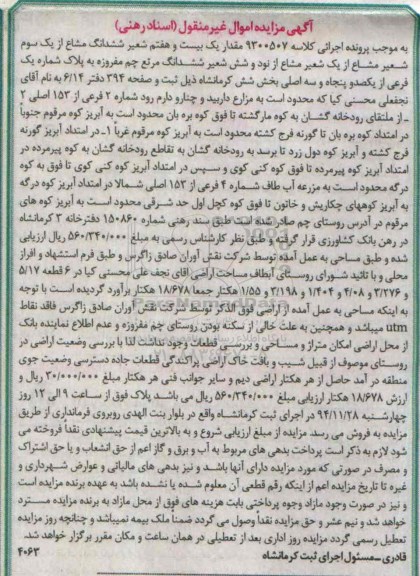 آگهی مزایده اموال غیرمنقول (اسناد رهنی)
به موجب پرونده اجرائی کلاسه ۹۳۰۰۵۰۷ مقدار یک بیست و هفتم شعیر ششدانگ مشاع از یک سوم
شعیر مشاع از یک شعیر مشاع از نود و شش شعیر ششدانگ مرتع چم مفروزه به پلاک شماره یک
فرعی از یکصدو پنجاه و سه اصلی بخش شش کرمانشاه ذیل ثبت و صفحه ۳۹۴ دفتر ۶/۱۴ به نام آقای
نجفعلی محسنی کیا که محدود است به مزارع داربید و چنارو دارم رود شماره ۲ فرعی از ۱۵۳ اصلی ۲
-از ملتقای رودخانه گشان به کوه مارگشته تا فوق کوه بره بان محدود است به آبریز کوه مرقوم جنوباً
در امتداد کوه بره بان تا گورنه فرج کشته محدود است به آبریز کوه مرقوم غربا ۱-در امتداد آبریز گورنه
فرج کشته و آبریز کوه دول زرد تا برسد به رودخانه گشان به تقاطع رودخانه گشان به کوه پیرمرده در
امتداد آبریز کوه پیرمرده تا فوق کوه کنی کوی و سپس در امتداد آبریز کوه کنی کوی تا فوق به کوه
درگه محدود است به مزرعه آب طاف شماره ۴ فرعی از ۱۵۳ اصلی شمالا در امتداد آبریز کوه درگه
به آبریز کوههای چکاریش و خاتون تا فوق کوه کچل اول حد شرقی محدود است به آبریز کوه های
مرقوم در آدرس روستای چم صادر شده است طبق سند رهنی شماره ۱۵۰۸۶۰ دفترخانه ۳ کرمانشاه
در رهن بانک کشاورزی قرار گرفته و طبق نظر کارشناس رسمی به مبلغ ۵۶۰/۳۴۰/۰۰۰ ریال ارزیابی
شده و طبق مساحی به عمل آمده توسط شرکت نقش آوران صادق زاگرس و طبق فرم استشهاد و افراز
محلی و با تائید شورای روستای آبطاف مساحت اراضی آقای نجف علی محسنی کیا در ۶ قطعه ۵/۱۷
و ۳/۲۷۶ و ۴/۰۸ و ۱/۴۰۴ و ۳/۱۹۸ و ۱/۵۵ هکتار جمعا ۱۸/۶۷۸ هکتار برآورد گردیده است با توجه
به اینکه مساحی به عمل آمده از اراضی فوق الذکر توسط شرکت نقش آوران صادق زاگرس فاقد نقاط
utm میباشد و همچنین به علت خالی از سکنه بودن روستای چم مفروزه و عدم اطلاع نماینده بانک
از محل اراضی امکان متراژ و مساحی و بررسی قطعات وجود نداشت لذا با بررسی وضعیت اراضی در
روستای موصوف از قبیل شیب و بافت خاک اراضی پراکندگی قطعات جاده دسترسی وضعیت جوی
منطقه در آمد حاصل از هر هکتار اراضی دیم و سایر جوانب فنی هر هکتار مبلغ ۳۰/۰۰۰/۰۰۰ ریال و
ارزش ۱۸/۶۷۸ هکتار ارزیابی مبلغ ۵۶۰/۳۴۰/۰۰۰ ریال می باشد پلاک فوق از ساعت ۹ الی ۱۲ روز
چهارشنبه ۹۴/۱۱/۲۸ در اجرای ثبت کرمانشاه واقع در بلوار بنت الهدی روبروی فرمانداری از طریق
مزایده به فروش می رسد مزایده از مبلغ ارزیابی شروع و به بالاترین قیمت پیشنهادی نقدا فروخته می
شود لازم به ذکر است پرداخت بدهی های مربوط به آب و برق و گاز اعم از حق انشعاب و یا حق اشتراک
و مصرف در صورتی که مورد مزایده دارای آنها باشد و نیز بدهی های مالیاتی و عوارض شهرداری و
غیره تا تاریخ مزایده اعم از اینکه رقم قطعی آن معلوم شده یا نشده باشد به عهده برنده مزایده است
و نیز در صورت وجود مازاد وجوه پرداختی بابت هزینه های فوق از محل مازاد به برنده مزایده مسترد
خواهد شد و نیم عشر و حق مزایده نقداً وصول می گردد ضمناً ملک بیمه نمیباشد و چنانچه روز مزایده
تعطیل رسمی گردد مزایده روز اداری بعد از تعطیلی در همان ساعت و مکان مقرر برگزار خواهد شد.
قادری-مسئول اجرای ثبت کرمانشاه ۴۰۶۳